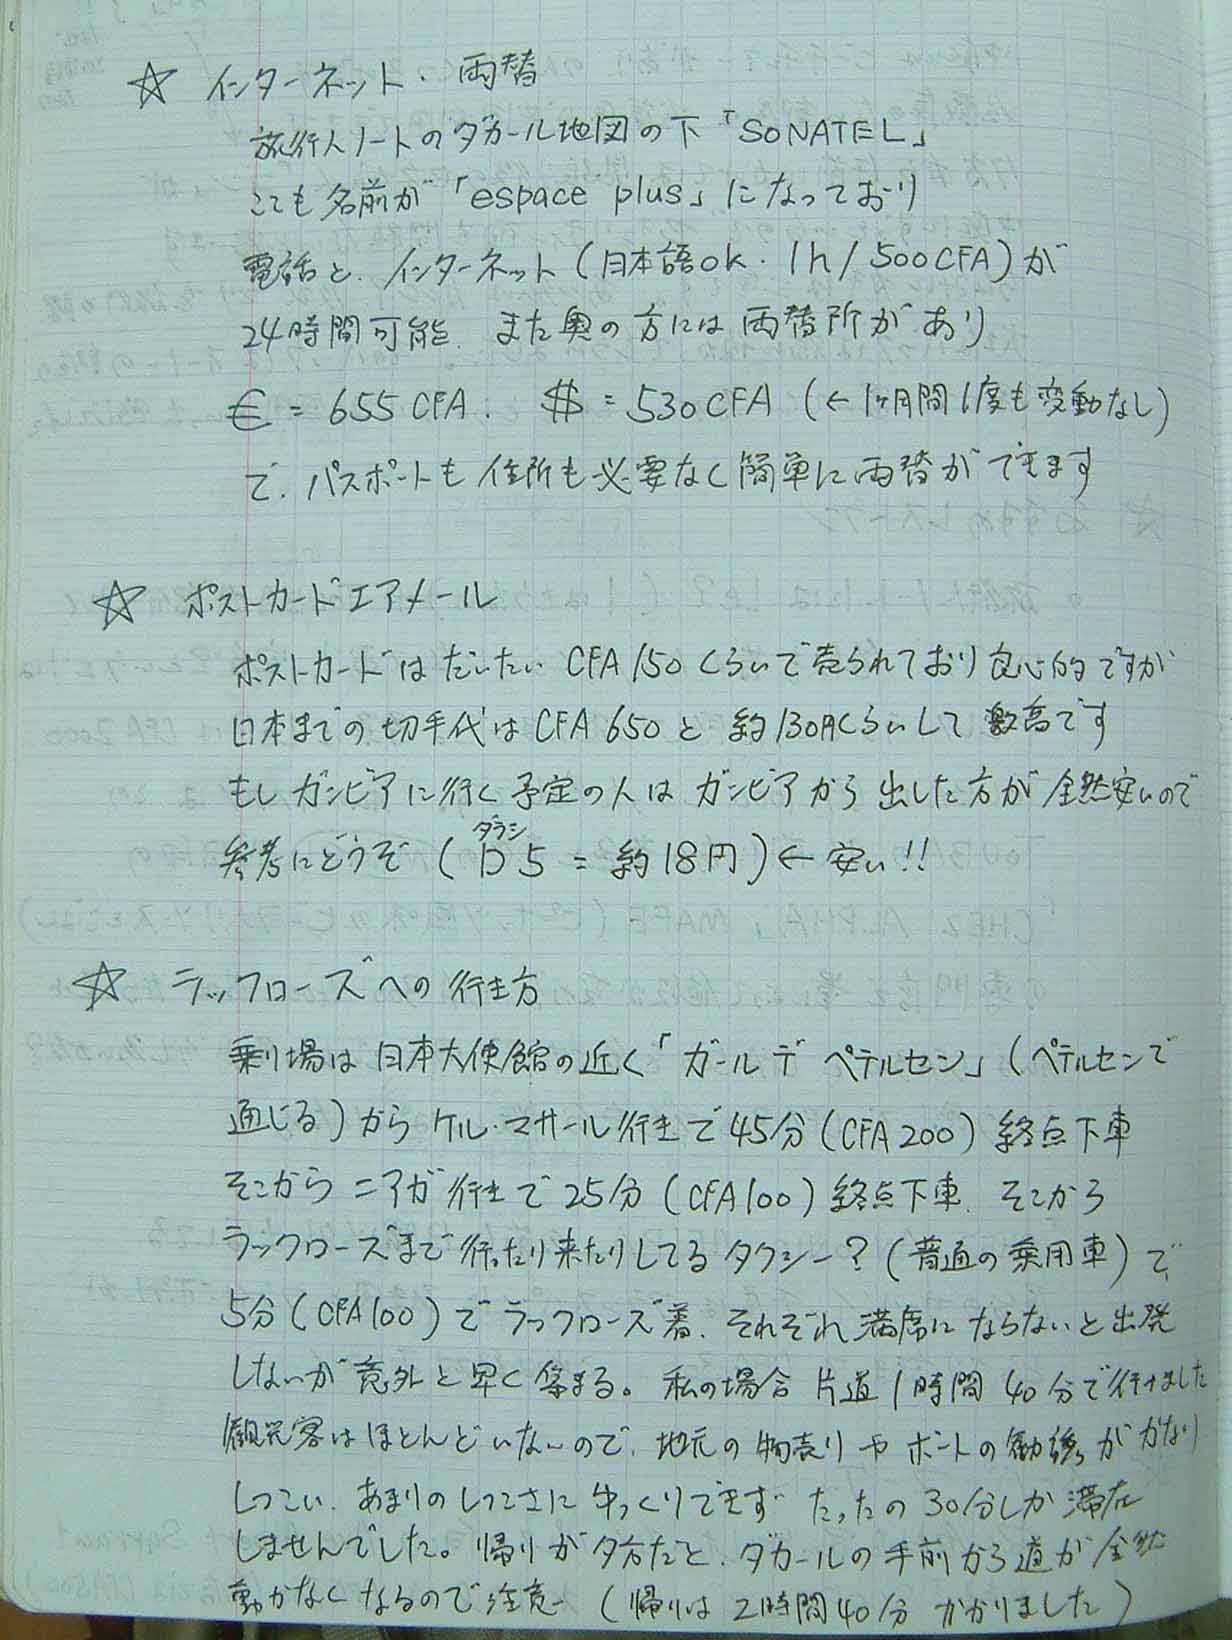 ☆ インターネット・両替
旅行人ノートのダカール地図の下「SONATEL」
こても名前が「espace plus」になっており
電話と、インターネット(日本語ok・1h/500CFA)が
24時間可能、また奥の方には両替所があり
€=655CFA. $=530CFA(←1ヶ月間1度も変動なし)
で、パスポートも住所も必要なく簡単に両替ができます
☆ ポストカードエアメール
ポストカードはだいたいCFA150くらいで売られており良心的ですが
日本までの切手代はCFA650と約130円くらいして激高です
もしガンビアに行く予定の人はガンビアから出した方が全然安いので
参考にどうぞ(D5=約18円)←安い!!
ダラシ
☆ ラックローズへの行き方
乗り場は日本大使館の近く「ガールデペテルセン」(ペテルセンで
通じる)からケル・マサール行きで45分(CFA200)終点下車
そこからニアガ行きで25分(CFA100)終点下車、そこから
ラックローズまで行ったり来たりしてるタクシー?(普通の乗用車)で、
5分(CFA100)でラックローズ着、それぞれ満席にならないと出発
しないが意外と早く集まる。私の場合片道1時間40分で行けました
観光客はほとんどいないので、地元の物売りやボートの勧誘がかなり
しつこい、あまりのしつこさにゆっくりできずたったの30分しか滞在
しませんでした。帰りが夕方だと、ダカールの手前から道が全然
動かなくなるので注意(帰りは2時間40分かかりました)